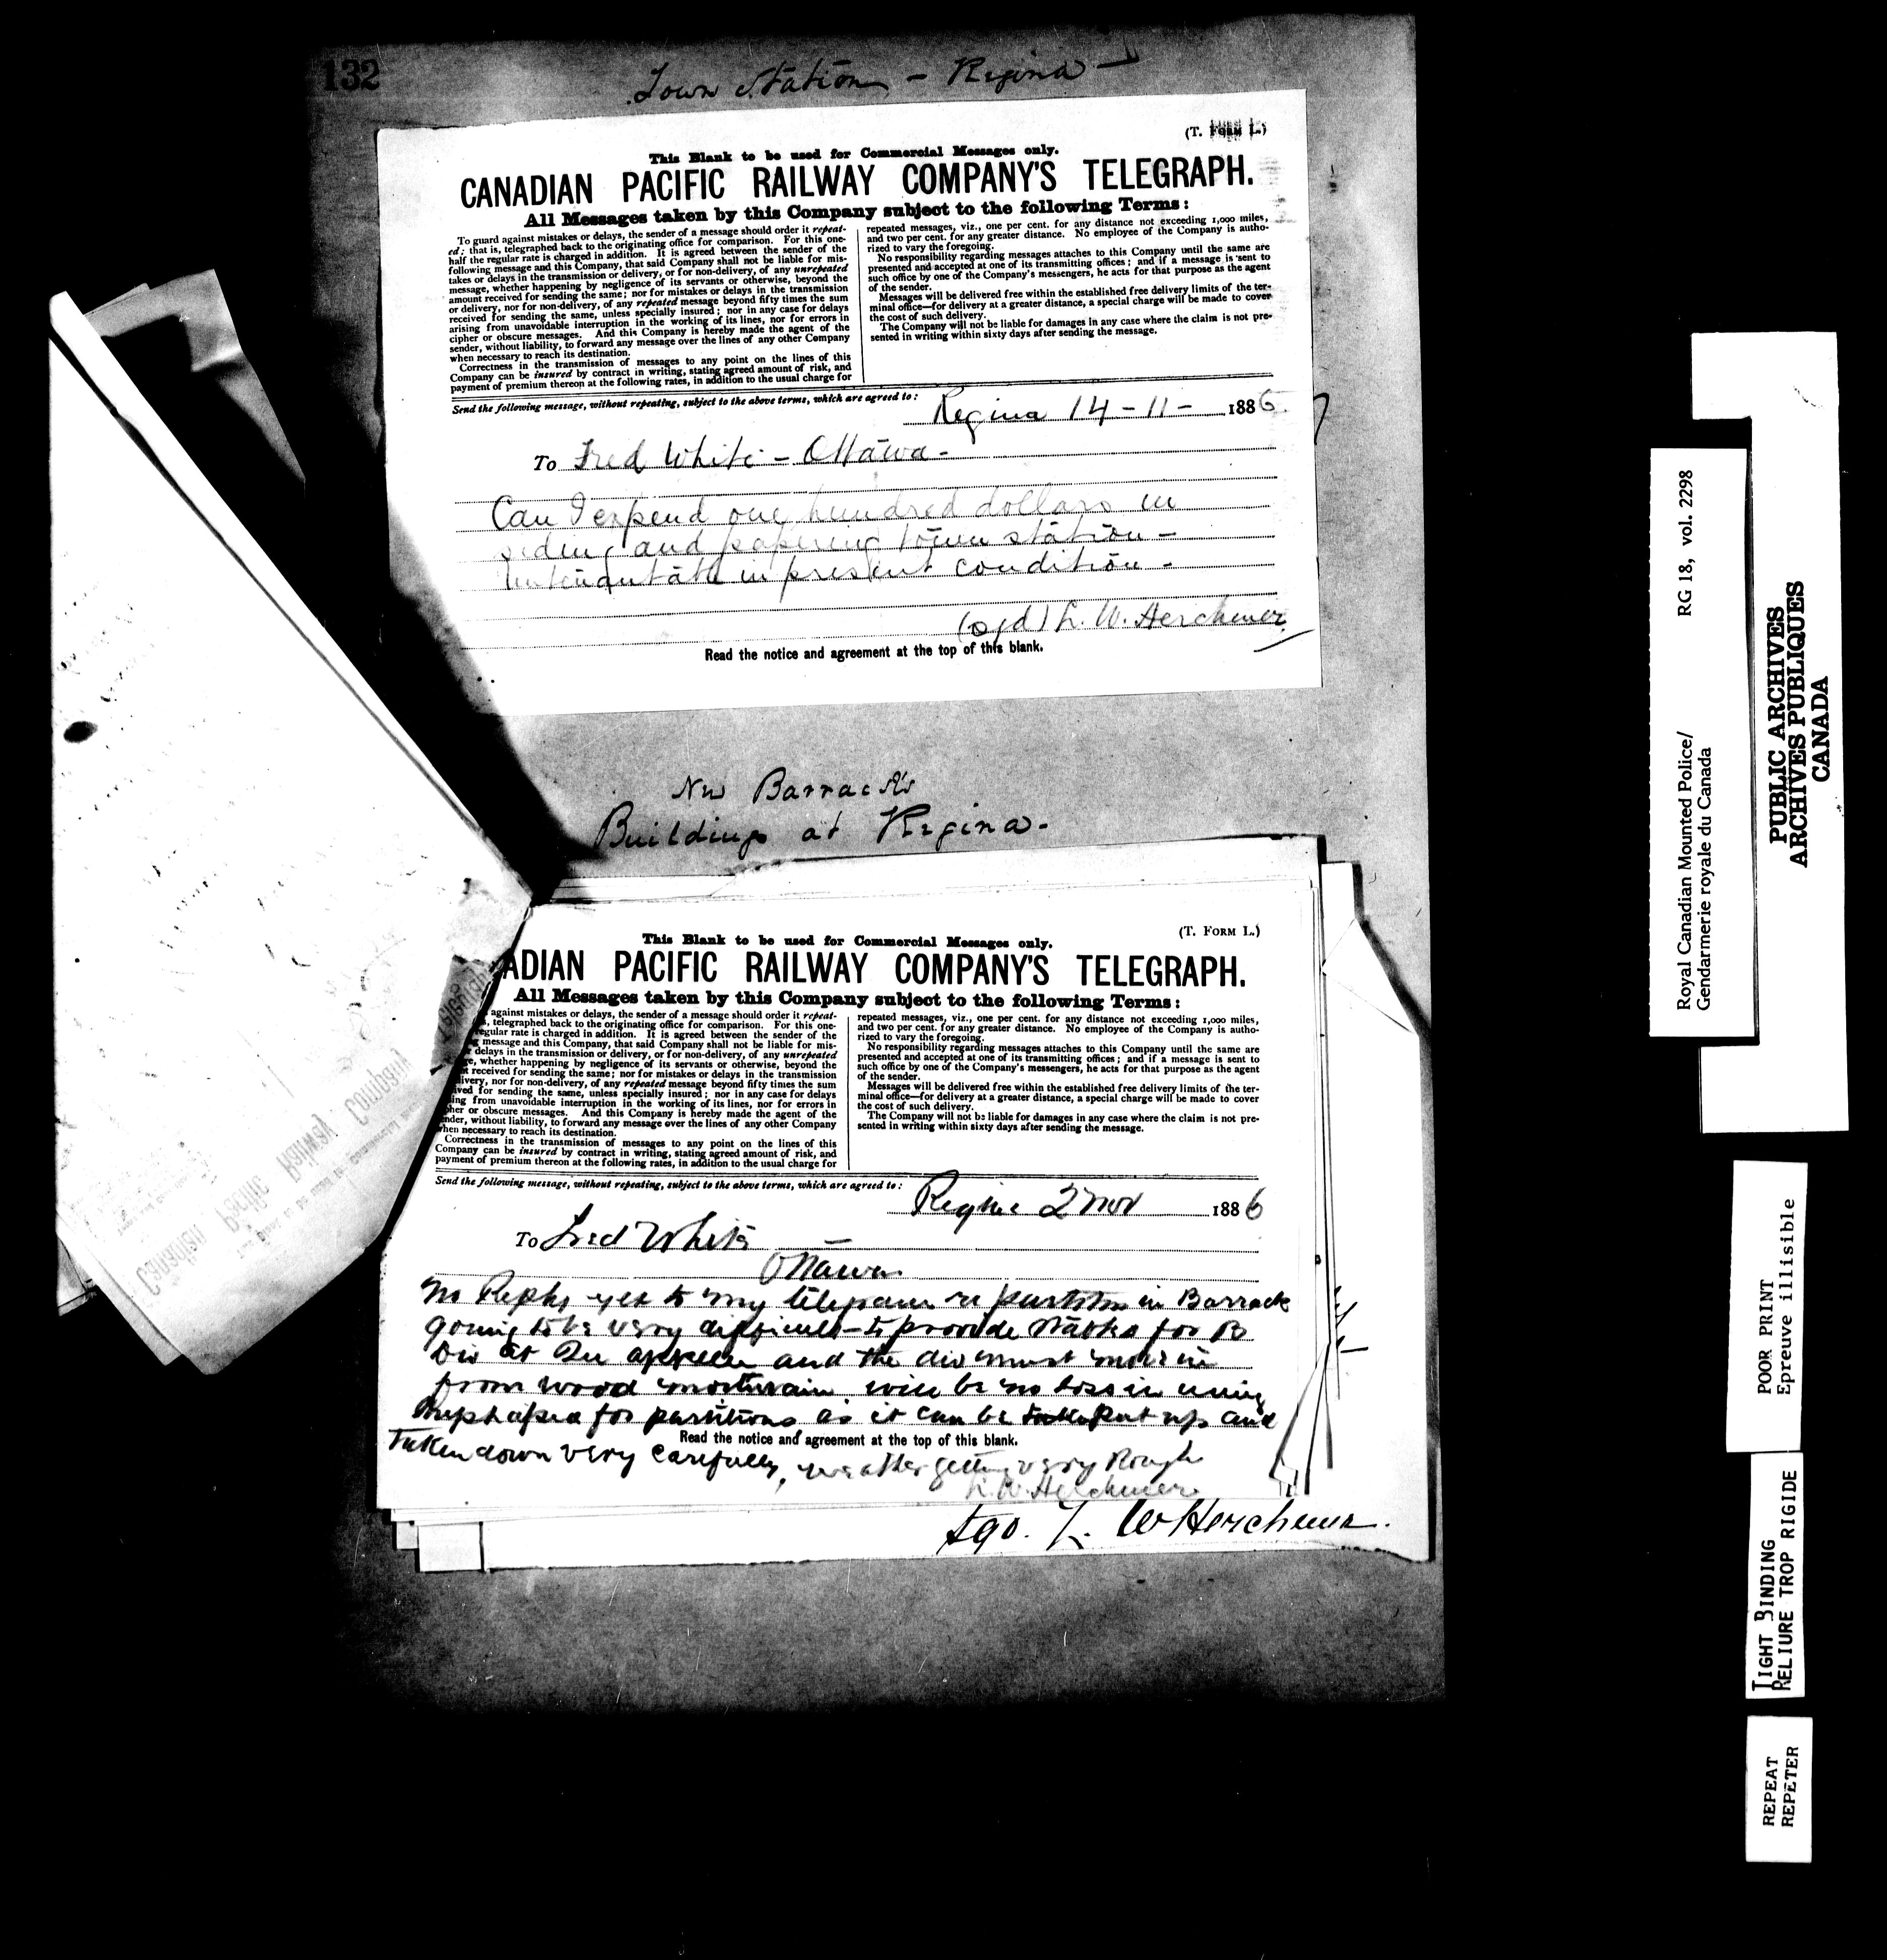 132
Town Station - Regina -
(T. FORM L.)
This Blank to be used for Commercial Messages only.
CANADIAN PACIFIC RAILWAY COMPANY'S TELEGRAPH.
All Messages taken by this Company subject to the following Terms:
To guard against mistakes or delays, the sender of a message should order it repeat-
ed; that is, telegraphed back to the originating office for comparison. For this one-
half the regular rate is charged in addition. It is agreed between the sender of the
following message and this Company, that said Company shall not be liable for mis-
takes or delays in the transmission or delivery, or for non-delivery, of any unrepeated
message, whether happening by negligence of its servants or otherwise, beyond the
amount received for sending the same; nor for mistakes or delays in the transmission
or delivery, nor for non-delivery, of any repeated message beyond fifty times the sum
received for sending the same, unless specially insured; nor in any case for delays
arising from unavoidable interruption in the working of its lines, nor for errors in
cipher or obscure messages. And this Company is hereby made the agent of the
sender, without liability, to forward any message over the lines of any other Company
when necessary to reach its destination.
Correctness in the transmission of messages to any point on the lines of this
Company can be insured by contract in writing, stating agreed amount of risk, and
payment of premium thereon at the following rates, in addition to the usual charge for
repeated messages, viz., one per cent. for any distance not exceeding 1,000 miles,
and two per cent. for any greater distance. No employee of the Company is autho-
rized to vary the foregoing.
No responsibility regarding messages attaches to this Company until the same are
presented and accepted at one of its transmitting offices; and if a message is sent to
such office by one of the Company's messengers, he acts for that purpose as the agent
of the sender.
Messages will be delivered free within the established free delivery limits of the ter-
minal office—for delivery at a greater distance, a special charge will be made to cover
the cost of such delivery.
The Company will not be liable for damages in any case where the claim is not pre-
sented in writing within sixty days after sending the message.
Send the following message, without repeating, subject to the above terms, which are agreed to:
Regina 14-11- 1886
To Fred White - Ottawa -
Can I expend one hundred dollars in
siding and papering town station -
Untenantable in present condition -
(sgd) L. W. Herchmer
Read the notice and agreement at the top of this blank.
New Barracks
Buildings at Regina.
(T. FORM L.)
This Blank to be used for Commercial Messages only.
ADIAN PACIFIC RAILWAY COMPANY'S TELEGRAPH.
All Messages taken by this Company subject to the following Terms:
against mistakes or delays, the sender of a message should order it repeat-
, telegraphed back to the originating office for comparison. For this one-
egular rate is charged in addition. It is agreed between the sender of the
message and this Company, that said Company shall not be liable for mis-
delays in the transmission or delivery, or for non-delivery, of any unrepeated
e, whether happening by negligence of its servants or otherwise, beyond the
t received for sending the same; nor for mistakes or delays in the transmission
livery, nor for non-delivery, of any repeated message beyond fifty times the sum
ived for sending the same, unless specially insured; nor in any case for delays
ing from unavoidable interruption in the working of its lines, nor for errors in
her or obscure messages. And this Company is hereby made the agent of the
nder, without liability, to forward any message over the lines of any other Company
hen necessary to reach its destination.
Correctness in the transmission of messages to any point on the lines of this
Company can be insured by contract in writing, stating agreed amount of risk, and
payment of premium thereon at the following rates, in addition to the usual charge for
repeated messages, viz., one per cent. for any distance not exceeding 1,000 miles,
and two per cent. for any greater distance. No employee of the Company is autho-
rized to vary the foregoing.
No responsibility regarding messages attaches to this Company until the same are
presented and accepted at one of its transmitting offices; and if a message is sent to
such office by one of the Company's messengers, he acts for that purpose as the agent
of the sender.
Messages will be delivered free within the established free delivery limits of the ter-
minal office—for delivery at a greater distance, a special charge will be made to cover
the cost of such delivery.
The Company will not be liable for damages in any case where the claim is not pre-
sented in writing within sixty days after sending the message.
Send the following message, without repeating, subject to the above terms, which are agreed to:
Regina 2 Nov 1886
To Fred White
Ottawa
No Reply yet to my telegram re partition in Barrack
going to be very difficult to provide stables for B
Div at Qu appelle and the div must move in
from wood mountain will be no loss in using
for partitions as it can be put up and
taken down very carefully, weather getting very Rough
L. W. Herchmer
Sgd. L. W Herchmer.
Read the notice and agreement at the top of this blank.
Canadian Pacific Railway Company
RG 18, vol. 2298
Royal Canadian Mounted Police/
Gendarmerie royale du Canada
PUBLIC ARCHIVES
ARCHIVES PUBLIQUES
CANADA
POOR PRINT
Epreuve illisible
TIGHT BINDING
RELIURE TROP RIGIDE
REPEAT
REPETER